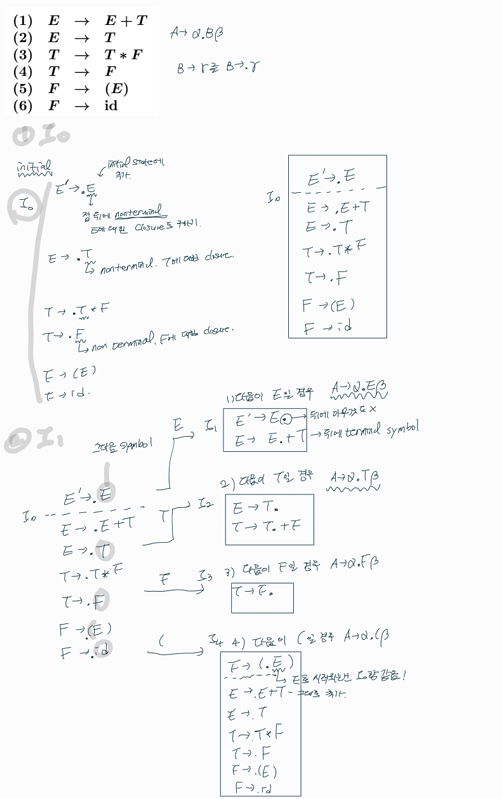 (1) E → E + T
(2) E → T
(3) T → T * F
(4) T → F
(5) F → (E)
(6) F → id
A → α.Bβ
B → γ를 B → .γ
① I₀
initial
I₀
E' → .E
initial state에
추가.
점 뒤에 nonterminal
E에 대한 closure도 구하기.
E → .T
nonterminal. T에 대한 closure.
T → .T * F
T → .F
non terminal, F에 대한 closure.
F → (E)
F → id.
I₀
E' → .E
E → .E+T
E → .T
T → .T * F
T → .F
F → (E)
F → id
② I₁
그다음 symbol
I₀
E' → .E
E → .E+T
E → .T
T → .T * F
T → .F
F → .(E)
F → .id
E I₁
1) 다음이 E일 경우 A → α.Eβ
E' → E.
뒤에 아무것도 x
E → E.+T
뒤에 terminal symbol
T I₂
2) 다음이 T일 경우 A → α.Tβ
E → T.
T → T.*F
F I₃
3) 다음이 F일 경우 A → α.Fβ
T → F.
( I₄
4) 다음이 (일 경우 A → α.(β
F → (.E)
E로 시작하면 I₀랑 같음!
E → .E+T - 그대로 추가.
E → .T
T → .T * F
T → .F
F → .(E)
F → .id